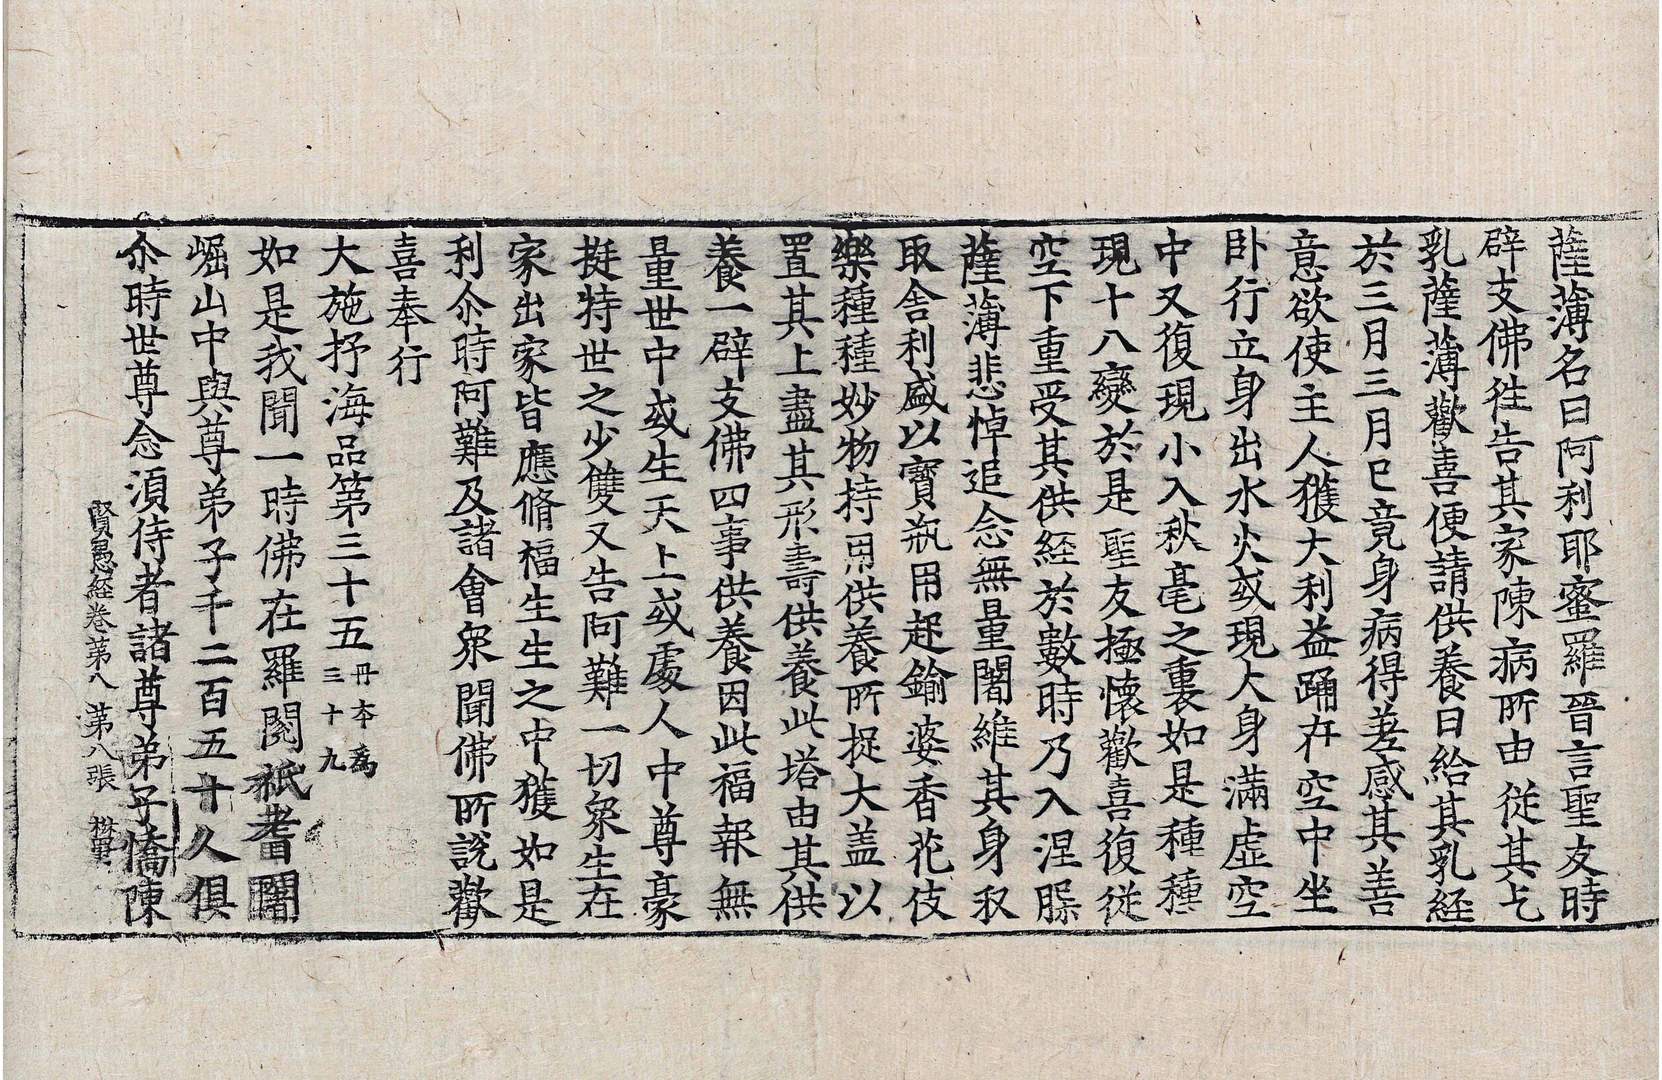 薩薄名曰阿利耶蜜羅晉言聖友時
辟支佛徃告其家陳病所由從其乞
乳薩薄歡喜便請供養日給其乳經
於三月三月已竟身病得差感其善
意欲使主人獲大利益踊在空中坐
卧行立身出水火或現大身滿虛空
中又復現小入秋毫之裏如是種種
現十八變於是聖友極懷歡喜復從
空下重受其供經於數時乃入涅槃
薩薄悲悼追念無量闍維其身収
取舍利盛以寶瓶用起鍮婆香花伎
樂種種妙物持用供養所捉大盖以
置其上盡其形壽供養此塔由其供
養一辟支佛四事供養因此福報無
量世中或生天上或處人中尊豪
挺特世之少雙又告阿難一切衆生在
家出家皆應脩福生生之中獲如是
利尒時阿難及諸會衆聞佛所說歡
喜奉行
大施抒海品第三十五丹本爲三十九
如是我聞一時佛在羅閱祇耆闍
崛山中與尊弟子千二百五十人俱
尒時世尊念湏侍者諸尊弟子憍陳
賢愚經卷第八 第八張